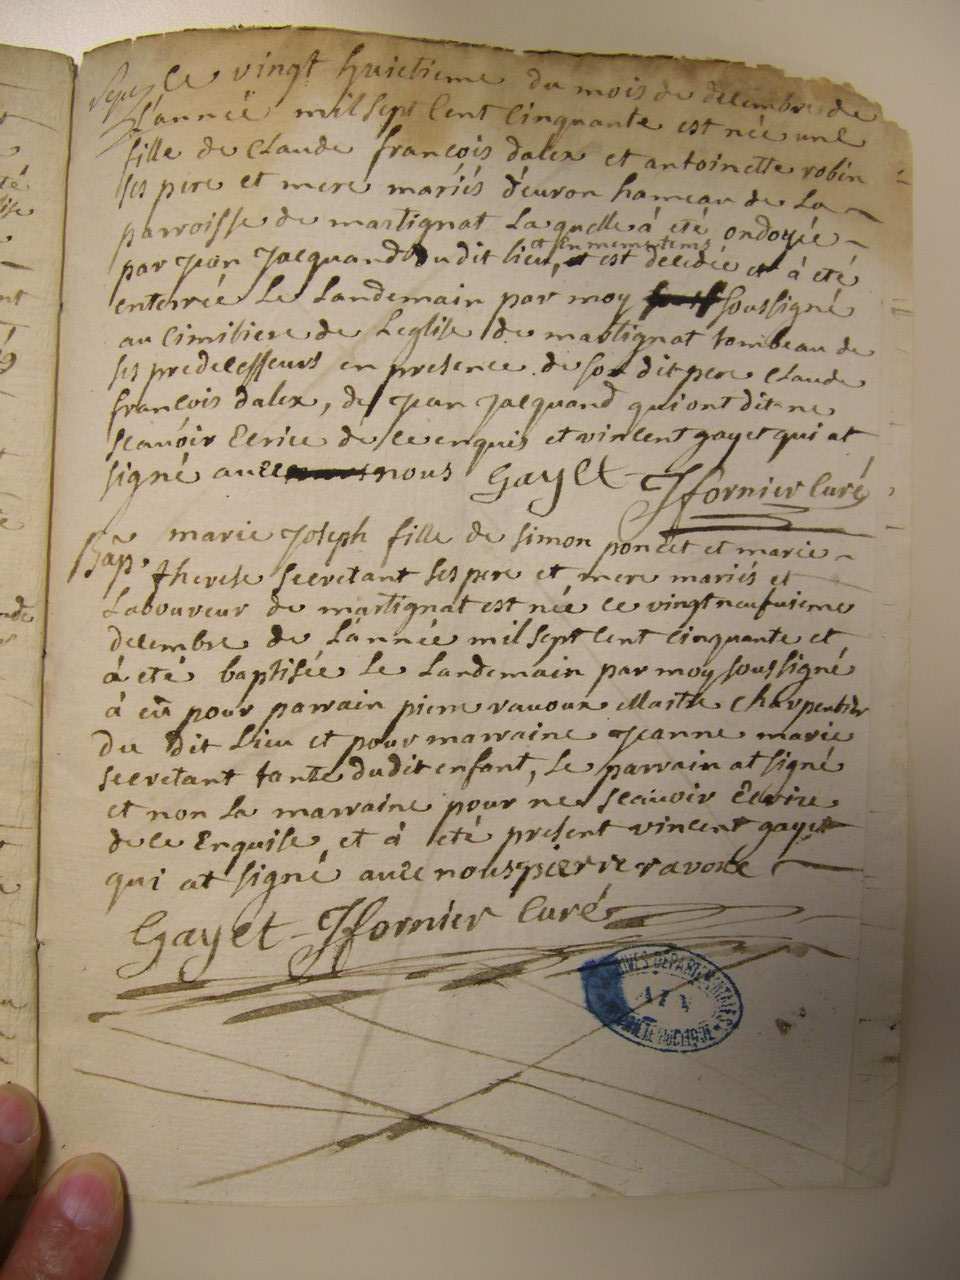 Sepu. Le vingt huictieme du mois de decembre de
L'année mil sept Cent Cinquante est née une
fille de Claude françois dalex et antoinette robin
ses pere et mere mariés d'euron hameau de La
parroisse de martignat La quelle á été ondoyée
par Jean Jacquand du dit lieu, et en meme tems
est decedée et á été
enterrée Le Landemain par moy soussigné
au Cimitiere de L'eglise de martignat tombeau de
ses predecesseurs en presence de son dit pere Claude
françois dalex, de Jean Jacquand qui ont dit ne
scauoir Ecrire de ce enquis et vincent gayet qui at
signé auec nous Gayet Jfornier Curé
Bap. marie Joseph fille de simon poncet et marie
therese secretant ses pere et mere mariés et
Laboureur de martignat est née ce vingt neufuieme
decembre de L'année mil sept Cent Cinquante et
á eté baptisée Le Landemain par moy soussigné
á eû pour parrain pierre rauoux Maitre Charpentier
du dit Lieu et pour marraine Jeanne marie
secretant tante du dit enfant, Le parrain at signé
et non La marraine pour ne scauoir Ecrire
de ce Enquise et á été present vincent gayet
qui at signé auec nous pierre ravoxe
Gayet Jfornier Curé
DEPARTEMENTALES
AIN